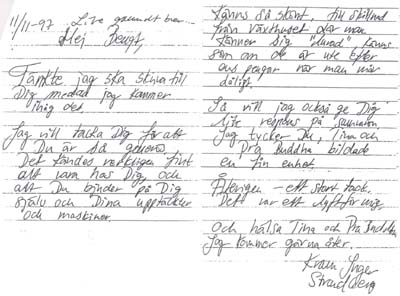 11/11-97
Hej Bengt,
Tänkte jag ska skriva till
Dig medan jag kommer
ihåg det.
Jag vill tacka Dig för att
Du är så generös.
Det kändes verkligen fint
att vara hos Dig och
att Du bjuder på Dig
själv och Dina upptäckter
och maskiner.
Känns så skönt, till skillnad
från växthuset där man
känner sig "lurad", känns
som om de är ute efter
ens pengar när man mår
dåligt.
Så vill jag också ge Dig
lite respons på
Jag tycker Du, Tina och
Pra Buddha bildade
en fin enhet.
Återigen - ett stort tack.
Det var ett lyft för mig.
Och hälsa Tina och Pra Buddha
Jag kommer gärna åter.
Kram Inger
Strandberg